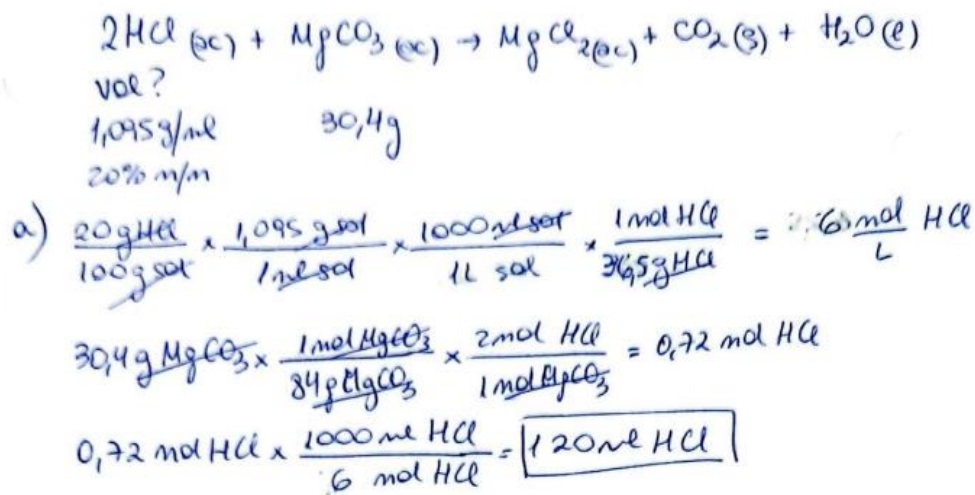 2HCl (ac) + MgCO3 (ac) → MgCl2(ac) + CO2 (g) + H2O (l)
vol?
1,095 g/ml 30,4g
20% m/m
a) 20gHCl/100g sol × 1,095 g sol/1ml sol × 1000ml sol/1L sol × 1mol HCl/36,5g HCl = 6 mol/L HCl
30,4g MgCO3 × 1mol MgCO3/84g MgCO3 × 2mol HCl/1mol MgCO3 = 0,72 mol HCl
0,72 mol HCl × 1000 ml HCl/6 mol HCl = 120 ml HCl